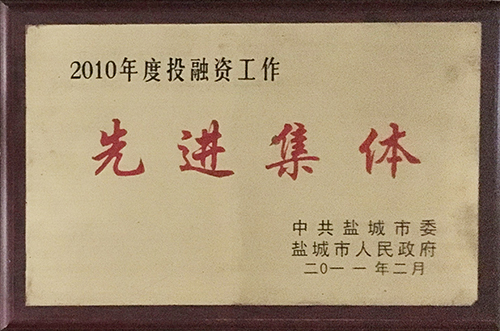 2010年度投融资工作
先进集体
中共盐城市委
盐城市人民政府
二〇一一年二月